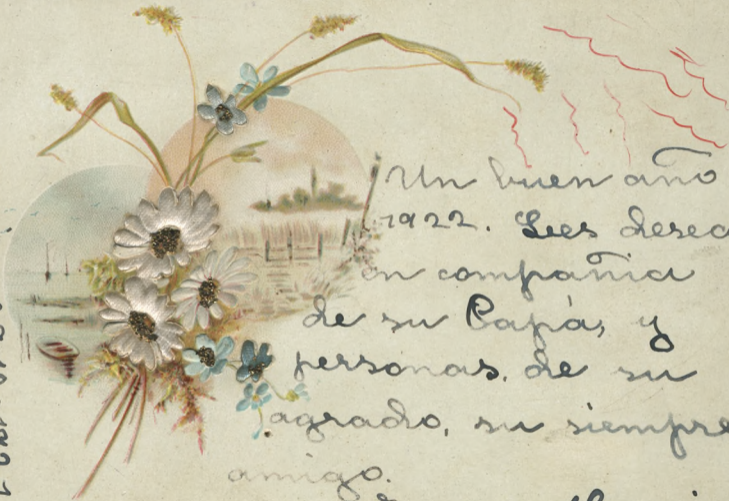 Un buen año
1922. Lees desea
en compañia
de su Papá, y
personas. de su
agrado, su siempre
amigo.